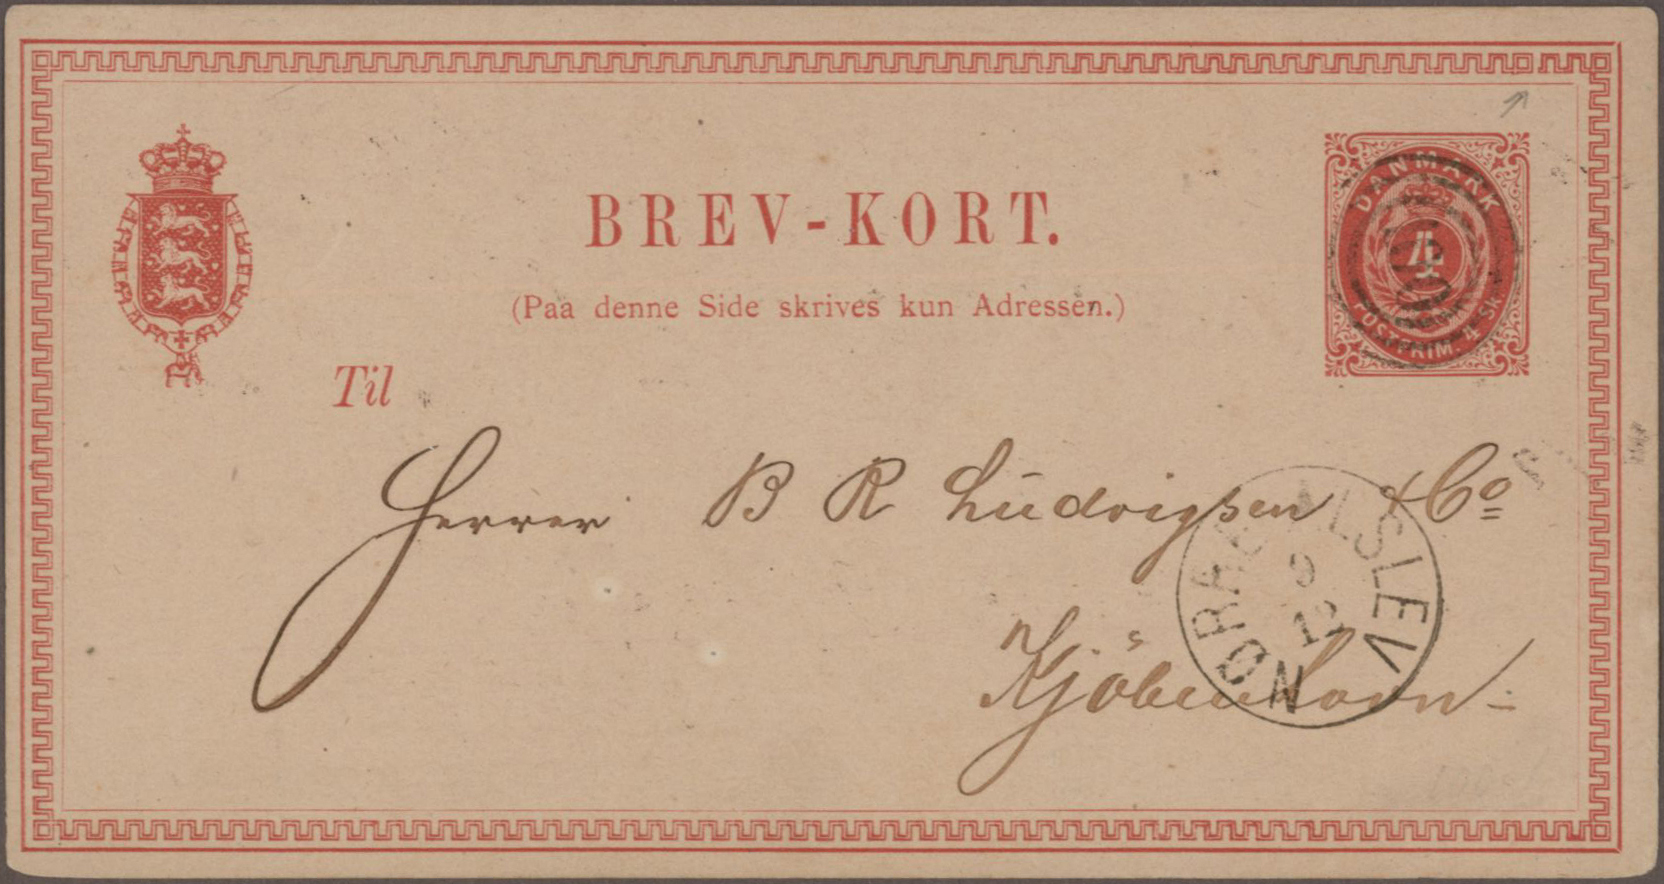 BREV-KORT.
(Paa denne Side skrives kun Adressen.)
DANMARK
4
POSTFRIM. 4 SK
Til
Herrer B R Ludvigsen & Co
Kjöbenhavn
NØRRE ALSLEV
9
12